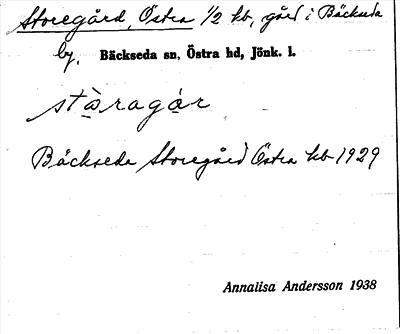 Storegård, Östra 1/2 kb, gård i Bäckseda
by. Bäckseda sn, Östra hd, Jönk. l.
stàragár
Bäckseda Storegård Östra kb 1929
Annalisa Andersson 1938